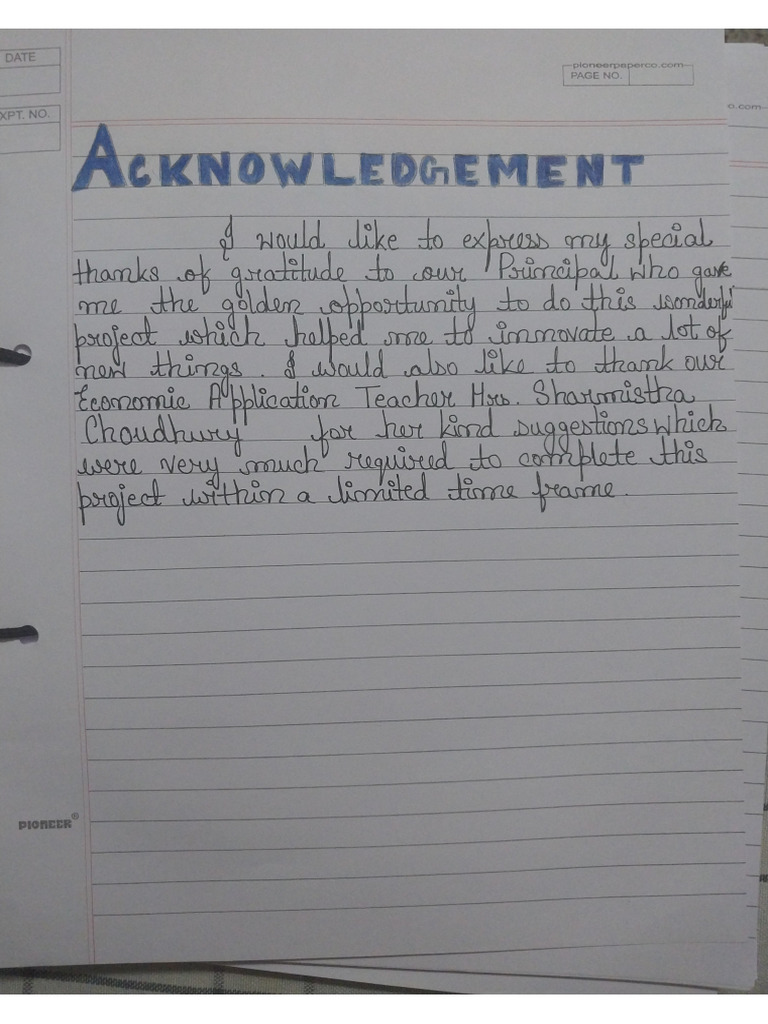 DATE
pioneerpaperco.com
PAGE NO.
o.com
XPT. NO.
ACKNOWLEDGEMENT
I would like to express my special
thanks of gratitude to our Principal who gave
me the golden opportunity to do this wonderful
project which helped me to innovate a lot of
new things. I would also like to thank our
Economic Application Teacher Mrs. Sharmistha
Choudhury for her kind suggestions which
were very much required to complete this
project within a limited time frame.
PIONEER®